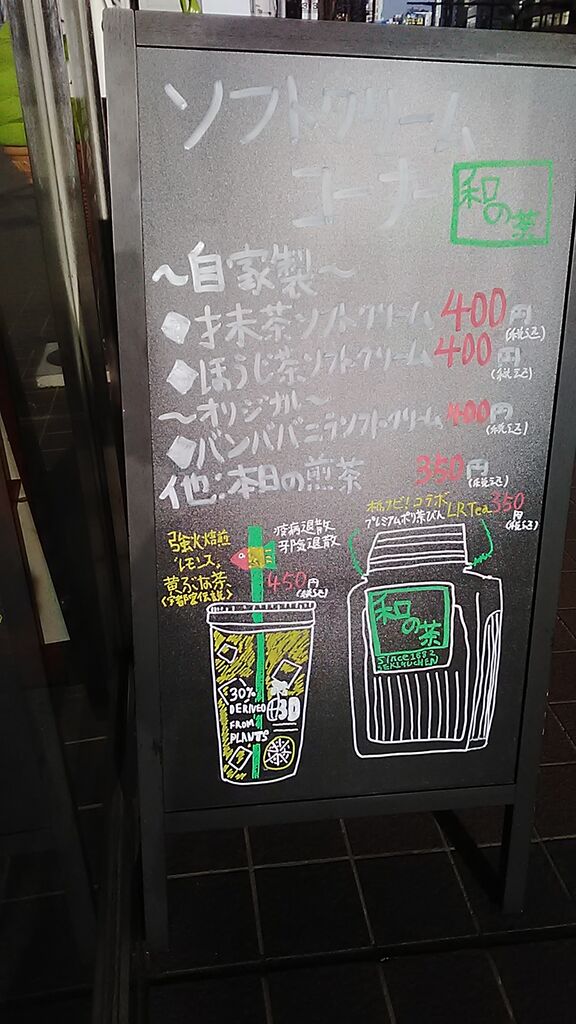 ソフトクリーム
コーナー
和の茶
〜自家製〜
◆抹茶ソフトクリーム 400円(税込)
◆ほうじ茶ソフトクリーム 400円(税込)
〜オリジナル〜
◆バンババニラソフトクリーム 400円(税込)
他:本日の煎茶 350円(税込)
コラボ
プレミアムポリ茶びん LRTea 350円(税込)
疫病退散
邪気退散
強火焙煎
レモンス。
黄ぶな茶、
〈宇都宮伝説〉
450円(税込)
和の茶
since1882
SEKIGUCHEN
30%
DERIVED
FROM
PLANTS
茶